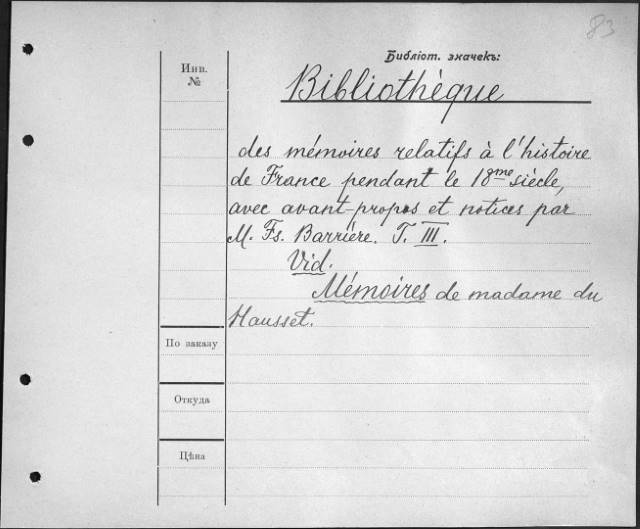 83
Библіот. значекъ:
Инв.
№
Bibliothèque
des mémoires relatifs à l'histoire
de France pendant le 18me siècle,
avec avant-propos et notices par
M. Fs. Barrière. T. III.
Vid.
Mémoires de madame du
Hausset.
По заказу
Откуда
Цѣна